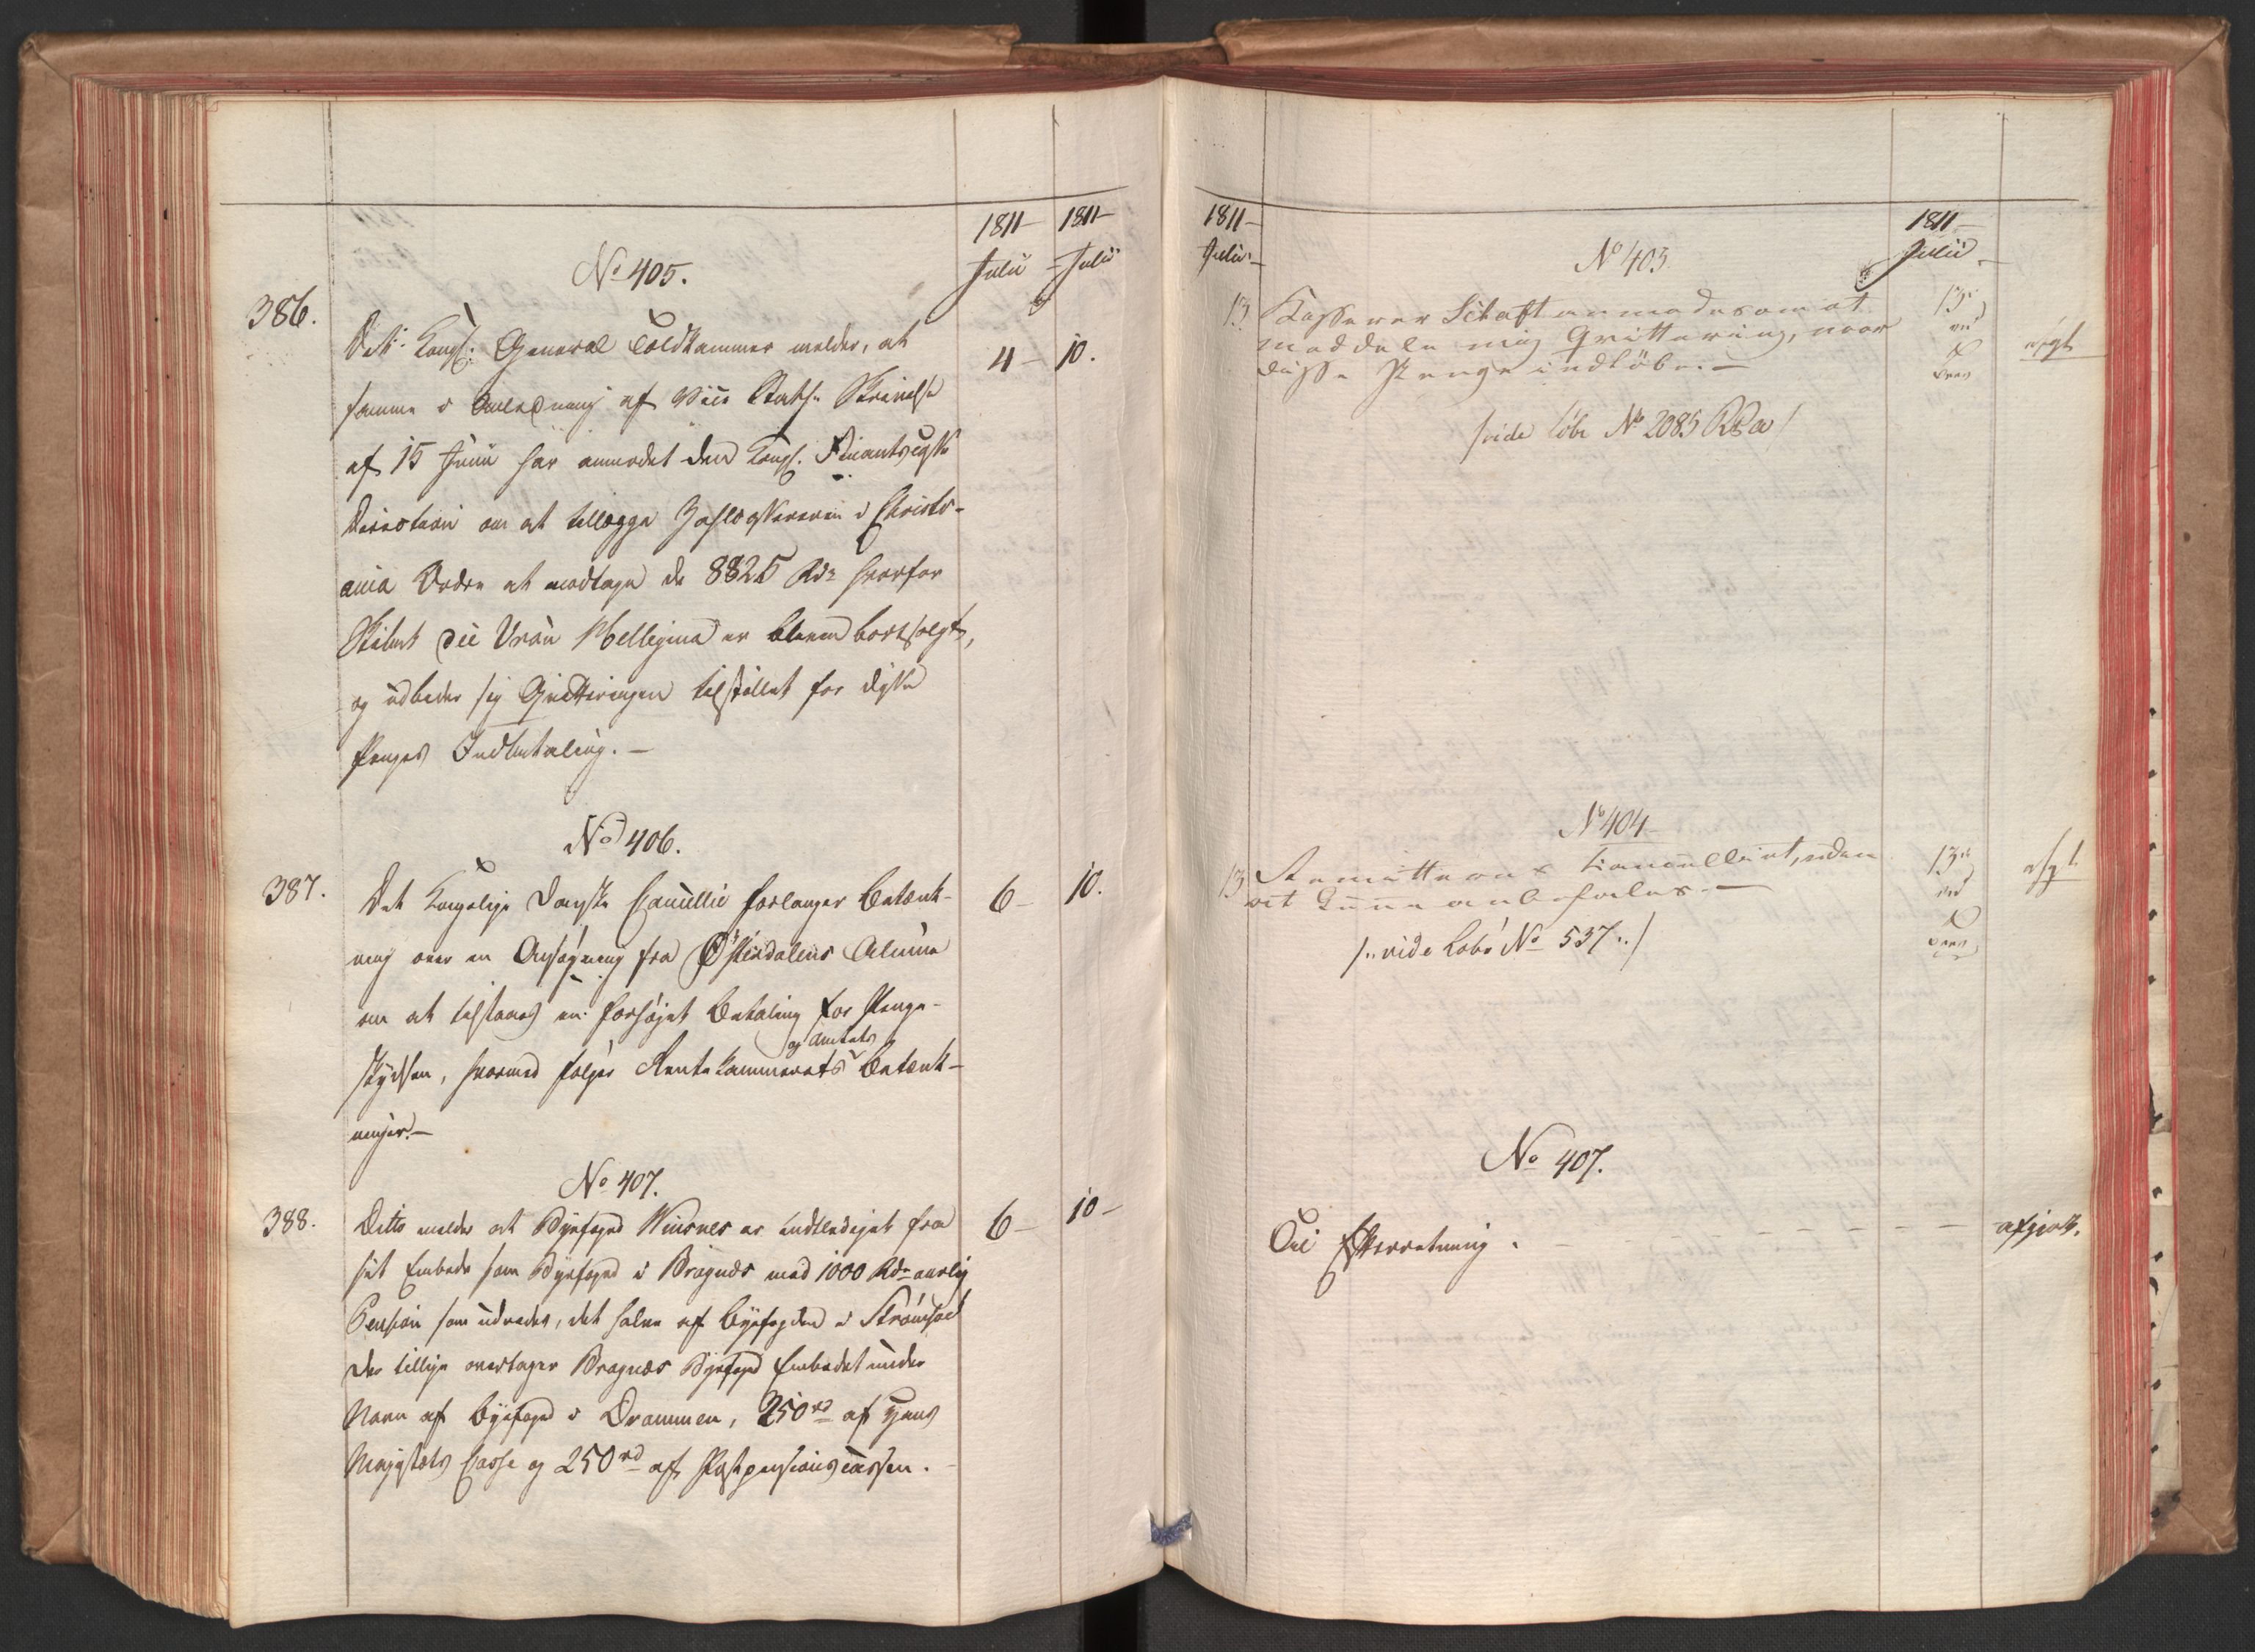 1811 — 1811 —
Julii — Julii
No 405.
386.
Det Kongl: General Toldkammer melder, at
4 — 10.
samme i Anledning af Vice Stath: Skrivelse
af 15 Junii har anmodet den Kongl. Finants
Direction om at tillægge Zahlkassereren i Christi-
ania Ordre at modtage de 8825 Rdr hvorfor
Skibet die Vrou Mellegina er bleven bortsolgt,
og udbeder sig Qvitteringen tilstillet for disse
Penges Indbetaling. —
No 406.
387.
Det Kongelige Danske Cancellie forlanger Betænk-
6 — 10.
ning over en Ansøgning fra Østerdalens Almue
om at tilstaaes en forhøjet Betaling for Penge-
og Amtets
skydsen, hvormed følger Rentekammerets Betænk-
ninger. —
No 407.
388.
Ditto melder at Byefoged Wiisnes er entlediget fra
6 — 10 —
sit Embede som Byefoged i Bragnæs med 1000 Rdr aarlig
Pension som udredes, det halve af Byefogden i Strömsöe
der tillige overtager Bragnæs Byefoged Embedet under
Navn af Byefoged i Drammen, 250 rd af Hans
Majestæts Casse og 250 rd af Postpensionscassen.
1811 — 1811 —
Julii — Julii —
No 403.
13 Kasserer Schaft anmodes om at
13
meddele mig Qvittering, naar
disse Penge indløber. —
exp.
/vide Cobi No 2085 /
No 404
13 Remitteres Cancelliet, uden
13
at kunne anbefales —
exp.
/: vide Cobi No 537 :/
No 407.
Til Efterretning. — — — — — afgjort.